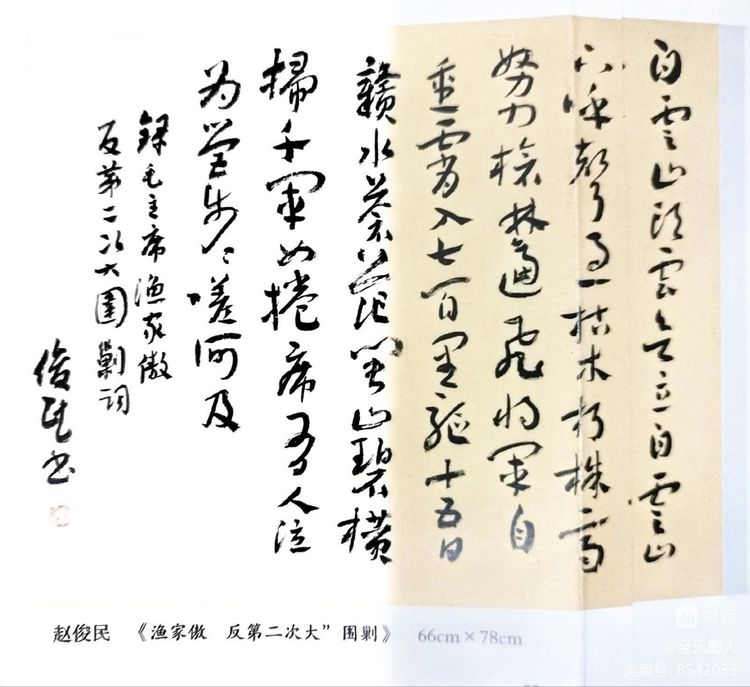 白雲山頭雲欲立白雲山
下呼聲急枯木朽株齊
努力槍林逼飛將軍自
重霄入七百里驅十五日
贛水蒼茫閩山碧橫
掃千軍如捲席有人泣
为營步々嗟何及
録毛主席渔家傲
反第二次大圍剿词
俊民书
赵俊民 《渔家傲 反第二次大”围剿》 66cm×78cm
美篇
@至乐蜀人
美篇号: 8542033